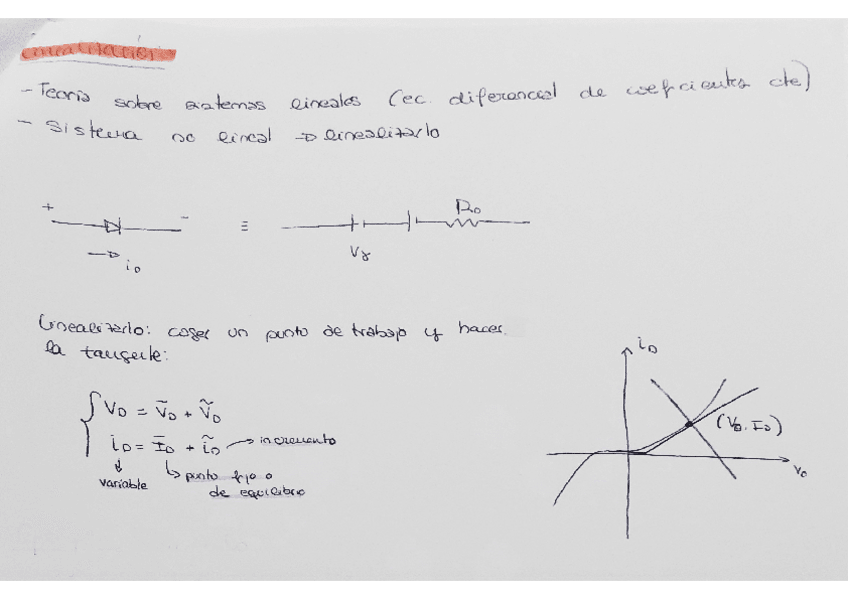 Linealización
- Teoría sobre sistemas lineales (ec. diferencial de coeficientes cte)
- Sistema no lineal → linealizarlo
+ - ≡ R_D
→ i_D V_γ
Linealizarlo: coger un punto de trabajo y hacer
la tangente:
i_D
V_D = V̄_D + Ṽ_D
(V_D, I_D)
i_D = Ī_D + ĩ_D → incremento
V_D
variable ↳ punto fijo o
de equilibrio